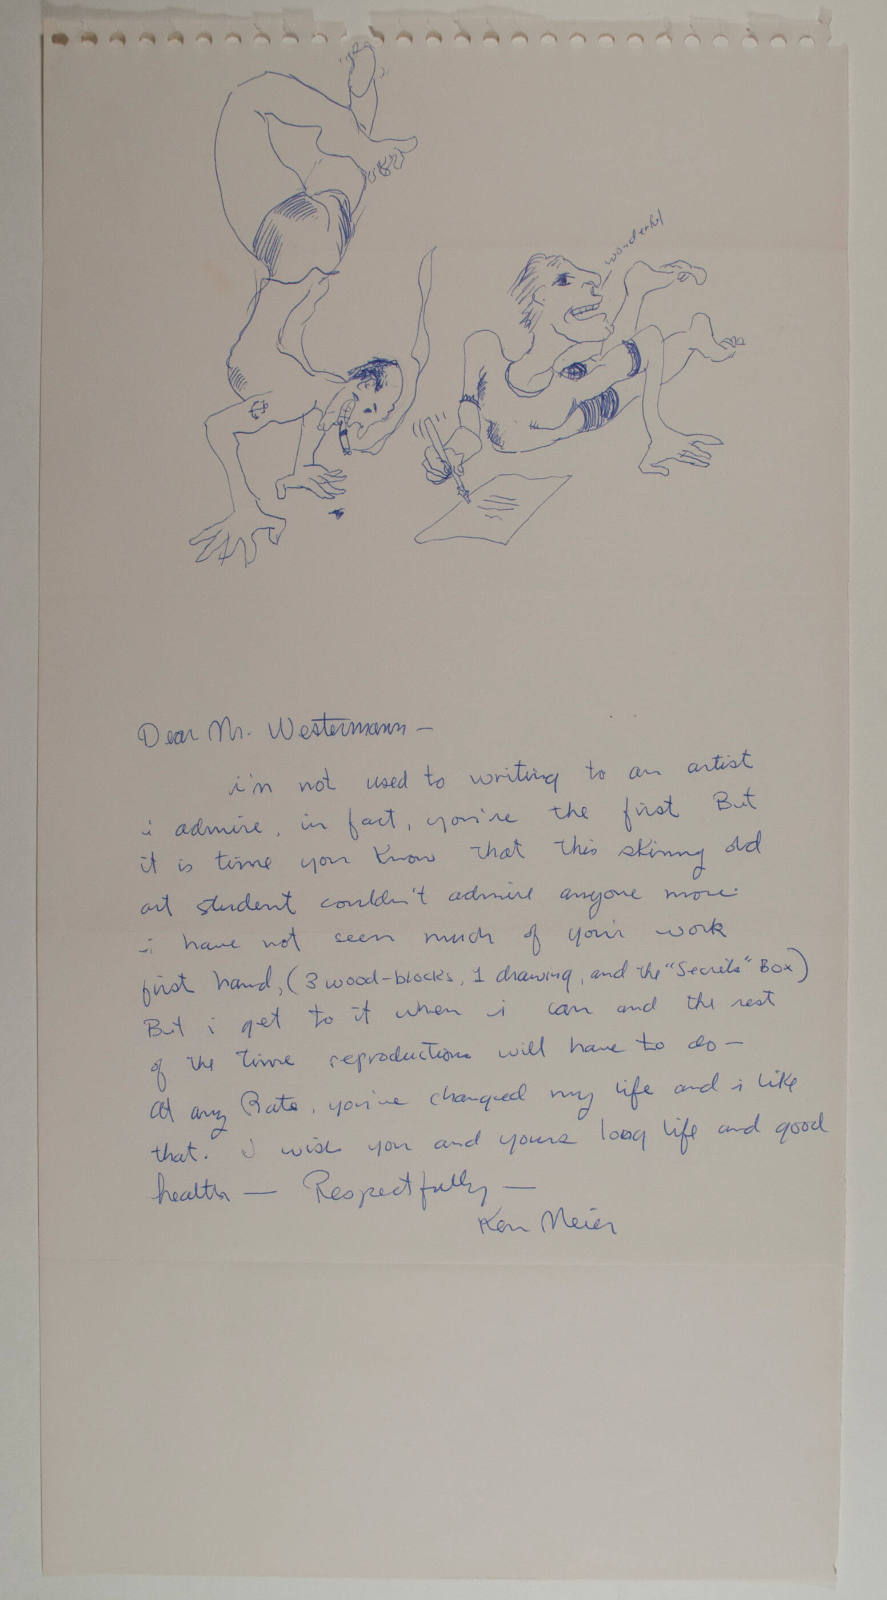 wonderful
Dear Mr. Westermann —
i'm not used to writing to an artist
i admire, in fact, you're the first But
it is time you know that this skinny old
art student couldn't admire anyone more.
i have not seen much of your work
first hand, (3 wood-blocks, 1 drawing, and the "Secrets" Box)
But i get to it when i can and the rest
of the time reproductions will have to do —
at any Rate, you've changed my life and i like
that. I wish you and yours long life and good
health — Respectfully —
Ken Meier